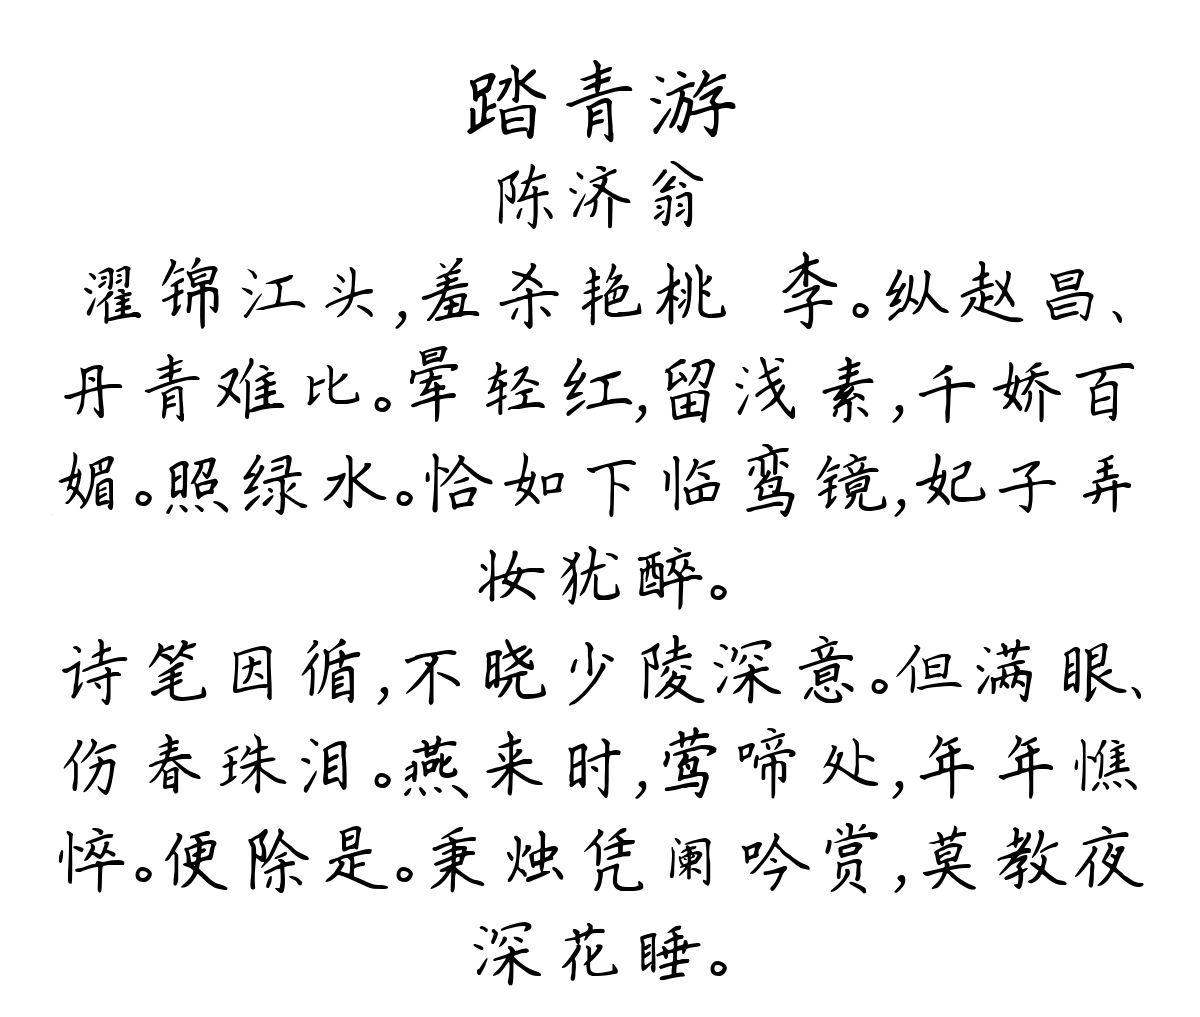 踏青游
陈济翁
濯锦江头,羞杀艳桃 李。纵赵昌、
丹青难比。晕轻红,留浅素,千娇百
媚。照绿水。恰如下临鸾镜,妃子弄
妆犹醉。
诗笔因循,不晓少陵深意。但满眼、
伤春珠泪。燕来时,莺啼处,年年憔
悴。便除是。秉烛凭阑吟赏,莫教夜
深花睡。